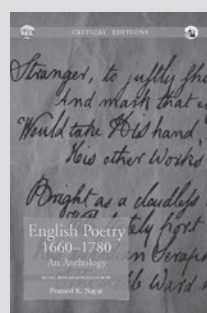 CRITICAL EDITIONS
Stranger, to justly
And mark that
Would take His hand
His other Works
Bright as a cloudless
English Poetry
1660–1780
An Anthology
Pramod K. Nayar